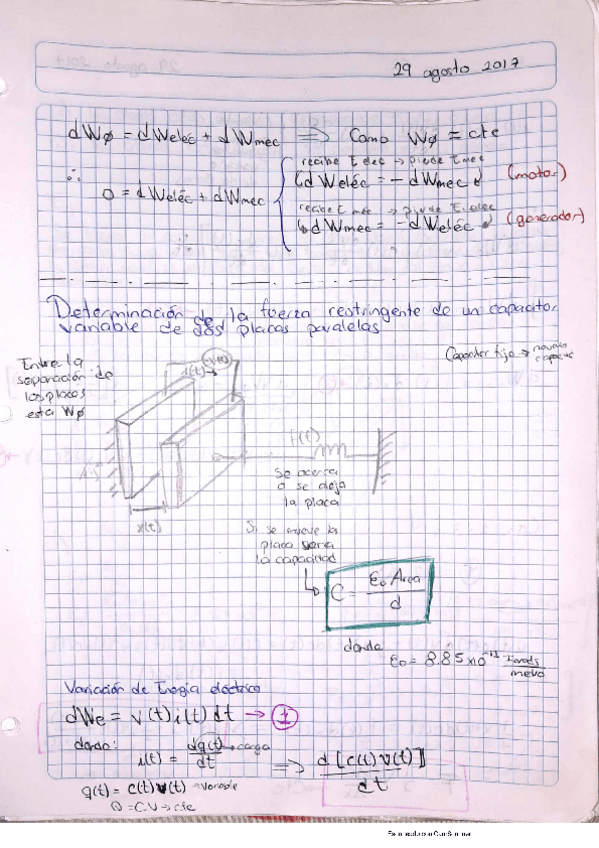 29 agosto 2017
dWø = dWeléc + dWmec ⟹ Como Wø = cte
recibe E elec → pierde E mec
∴ (dWeléc = - dWmec (motor)
0 = dWeléc + dWmec
recibe E mec → pierde E. elec
↳ dWmec = - dWeléc (generador)
Determinación de la fuerza restringente de un capacitor
variable de dos placas paralelas
Capacitor fijo →
Entre la
separación de
las placas
esta Wø
i(t)→
f(t)
Se acerca
o se aleja
la placa
x(t)
Si se mueve la
placa varia
la capacidad
↳ C = εo Area / d
donde
εo = 8.85 x10⁻¹² Farads / metro
Variación de Energía eléctrica
dWe = v(t) i(t) dt → 1
donde:
i(t) = dq(t) / dt → carga ⟹ d [c(t) v(t)] / dt
q(t) = c(t) v(t) → variable
Q = C.V → cte